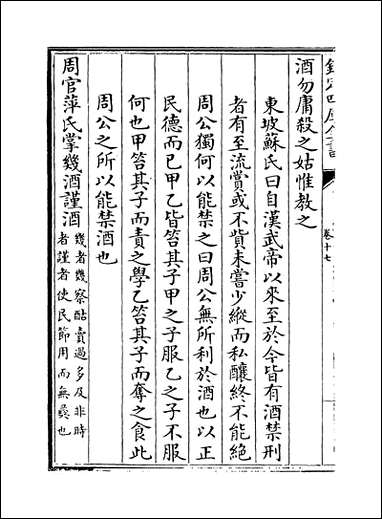 欽定四庫全書
卷十七
酒勿庸殺之姑惟教之
東坡蘇氏曰自漢武帝以來至於今皆有酒禁刑
者有至流賞或不貲未嘗少縱而私釀終不能絕
周公獨何以能禁之曰周公無所利於酒也以正
民德而已甲乙皆笞其子甲之子服乙之子不服
何也甲笞其子而責之學乙笞其子而奪之食此
周公之所以能禁酒也
周官萍氏掌幾酒謹酒幾者幾察酤賣過多及非時
者謹者使民節用而無彛也